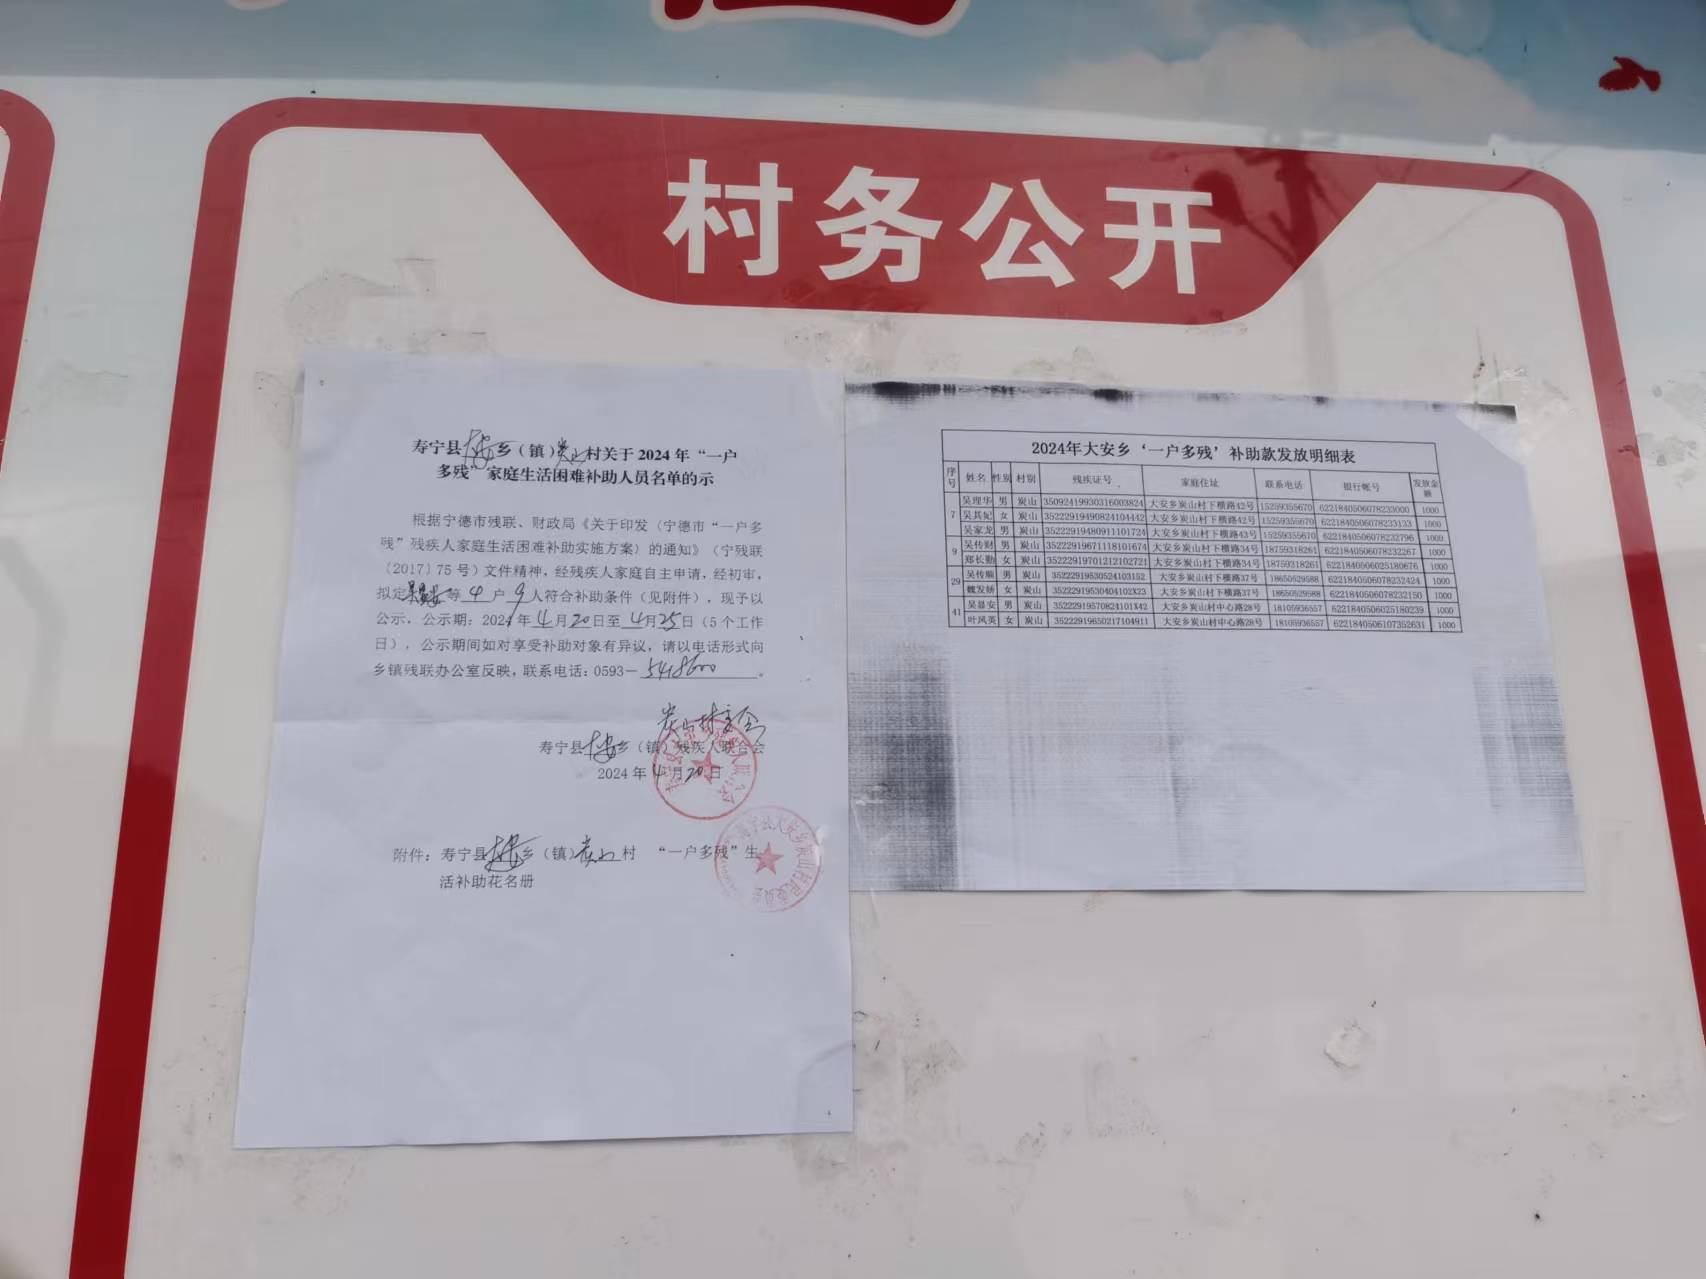 村务公开
寿宁县大安乡(镇)炭山村关于2024年“一户
多残”家庭生活困难补助人员名单的示
根据宁德市残联、财政局《关于印发〈宁德市“一户多
残”残疾人家庭生活困难补助实施方案〉的通知》(宁残联
〔2017〕75号)文件精神,经残疾人家庭自主申请,经初审,
拟定等4户9人符合补助条件(见附件),现予以
公示,公示期:2024年4月20日至4月25日(5个工作
日),公示期间如对享受补助对象有异议,请以电话形式向
乡镇残联办公室反映,联系电话:0593-5418600。
炭山村委会
寿宁县大安乡(镇)残疾人联合会
2024年4月20日
附件:寿宁县大安乡(镇)炭山村 “一户多残”生
活补助花名册
寿宁县大安乡炭山村民委员会
2024年大安乡‘一户多残’补助款发放明细表
序号 姓名 性别 村别 残疾证号 家庭住址 联系电话 银行帐号 发放金额
7 吴理华 男 炭山 35092419930316003824 大安乡炭山村下横路42号 15259355670 6221840506078233000 1000
吴其妃 女 炭山 35222919490824104442 大安乡炭山村下横路42号 15259355670 6221840506078233133 1000
吴家龙 男 炭山 35222919480911101724 大安乡炭山村下横路43号 15259355670 6221840506078232796 1000
9 吴传财 男 炭山 35222919671118101674 大安乡炭山村下横路34号 18759318261 6221840506078232267 1000
郑长勤 女 炭山 35222919701212102721 大安乡炭山村下横路34号 18759318261 6221840506025180676 1000
29 吴传顺 男 炭山 35222919530524103152 大安乡炭山村下横路37号 18650529588 6221840506078232424 1000
魏发娇 女 炭山 35222919530404102X23 大安乡炭山村下横路37号 18650529588 6221840506078232150 1000
41 吴显安 男 炭山 35222919570824101X42 大安乡炭山村中心路28号 18105936557 6221840506025180239 1000
叶凤英 女 炭山 35222919650217104911 大安乡炭山村中心路28号 18105936557 6221840506107352631 1000